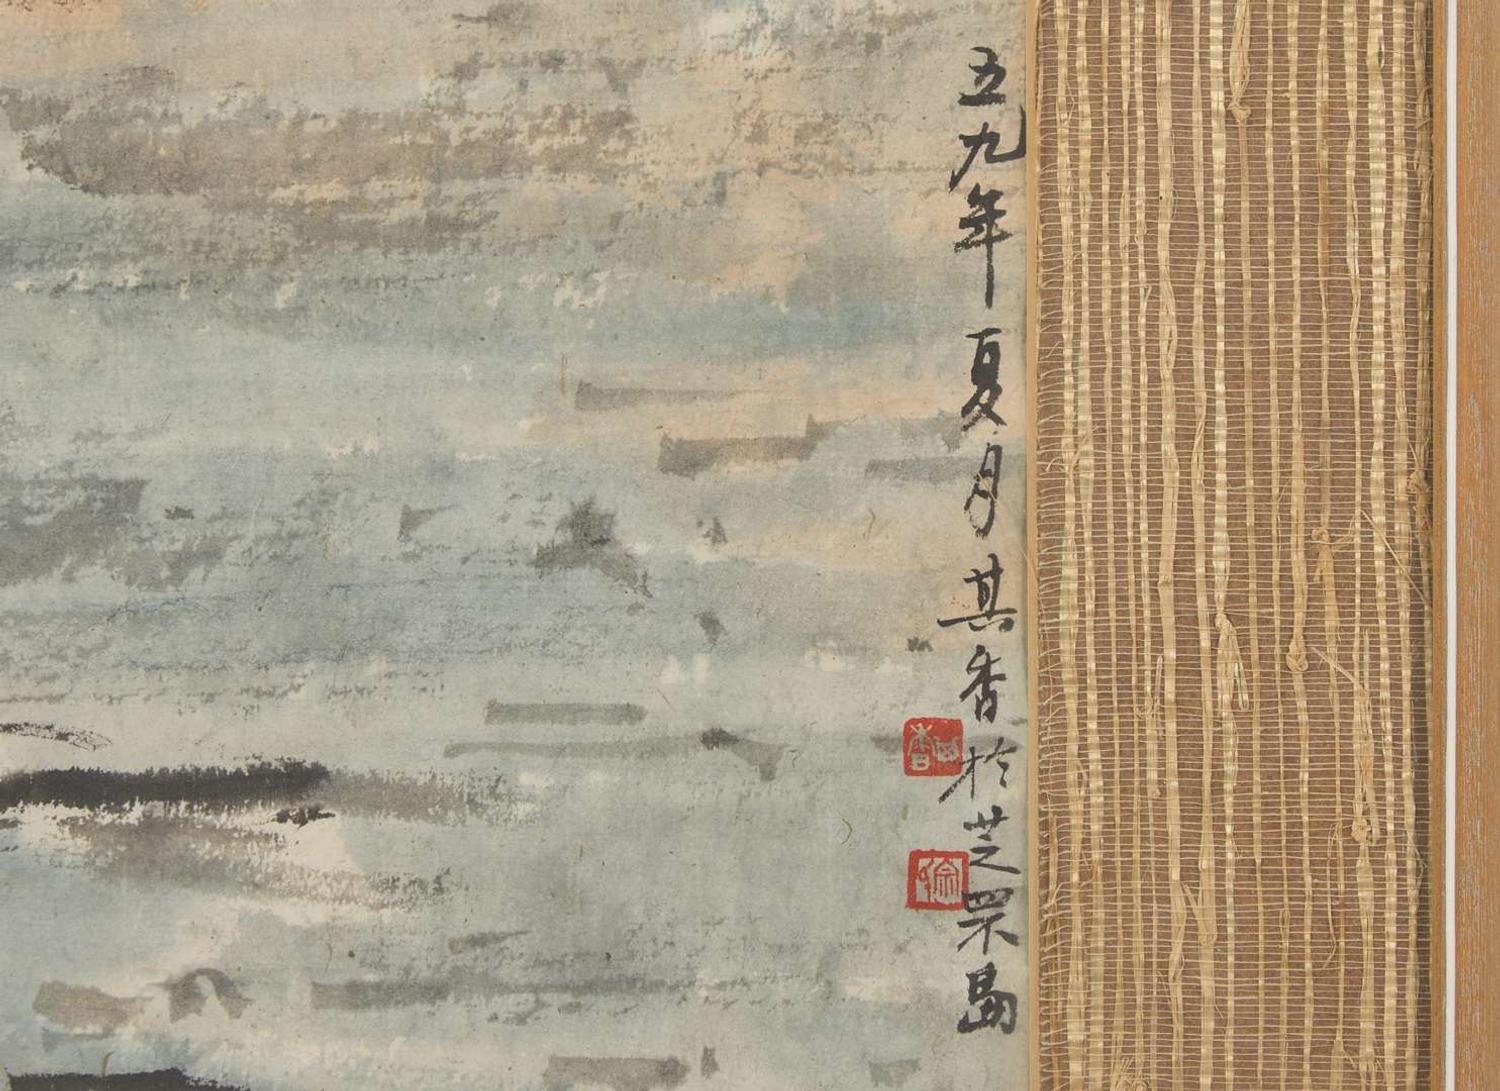 五九年夏月其香於芝罘島